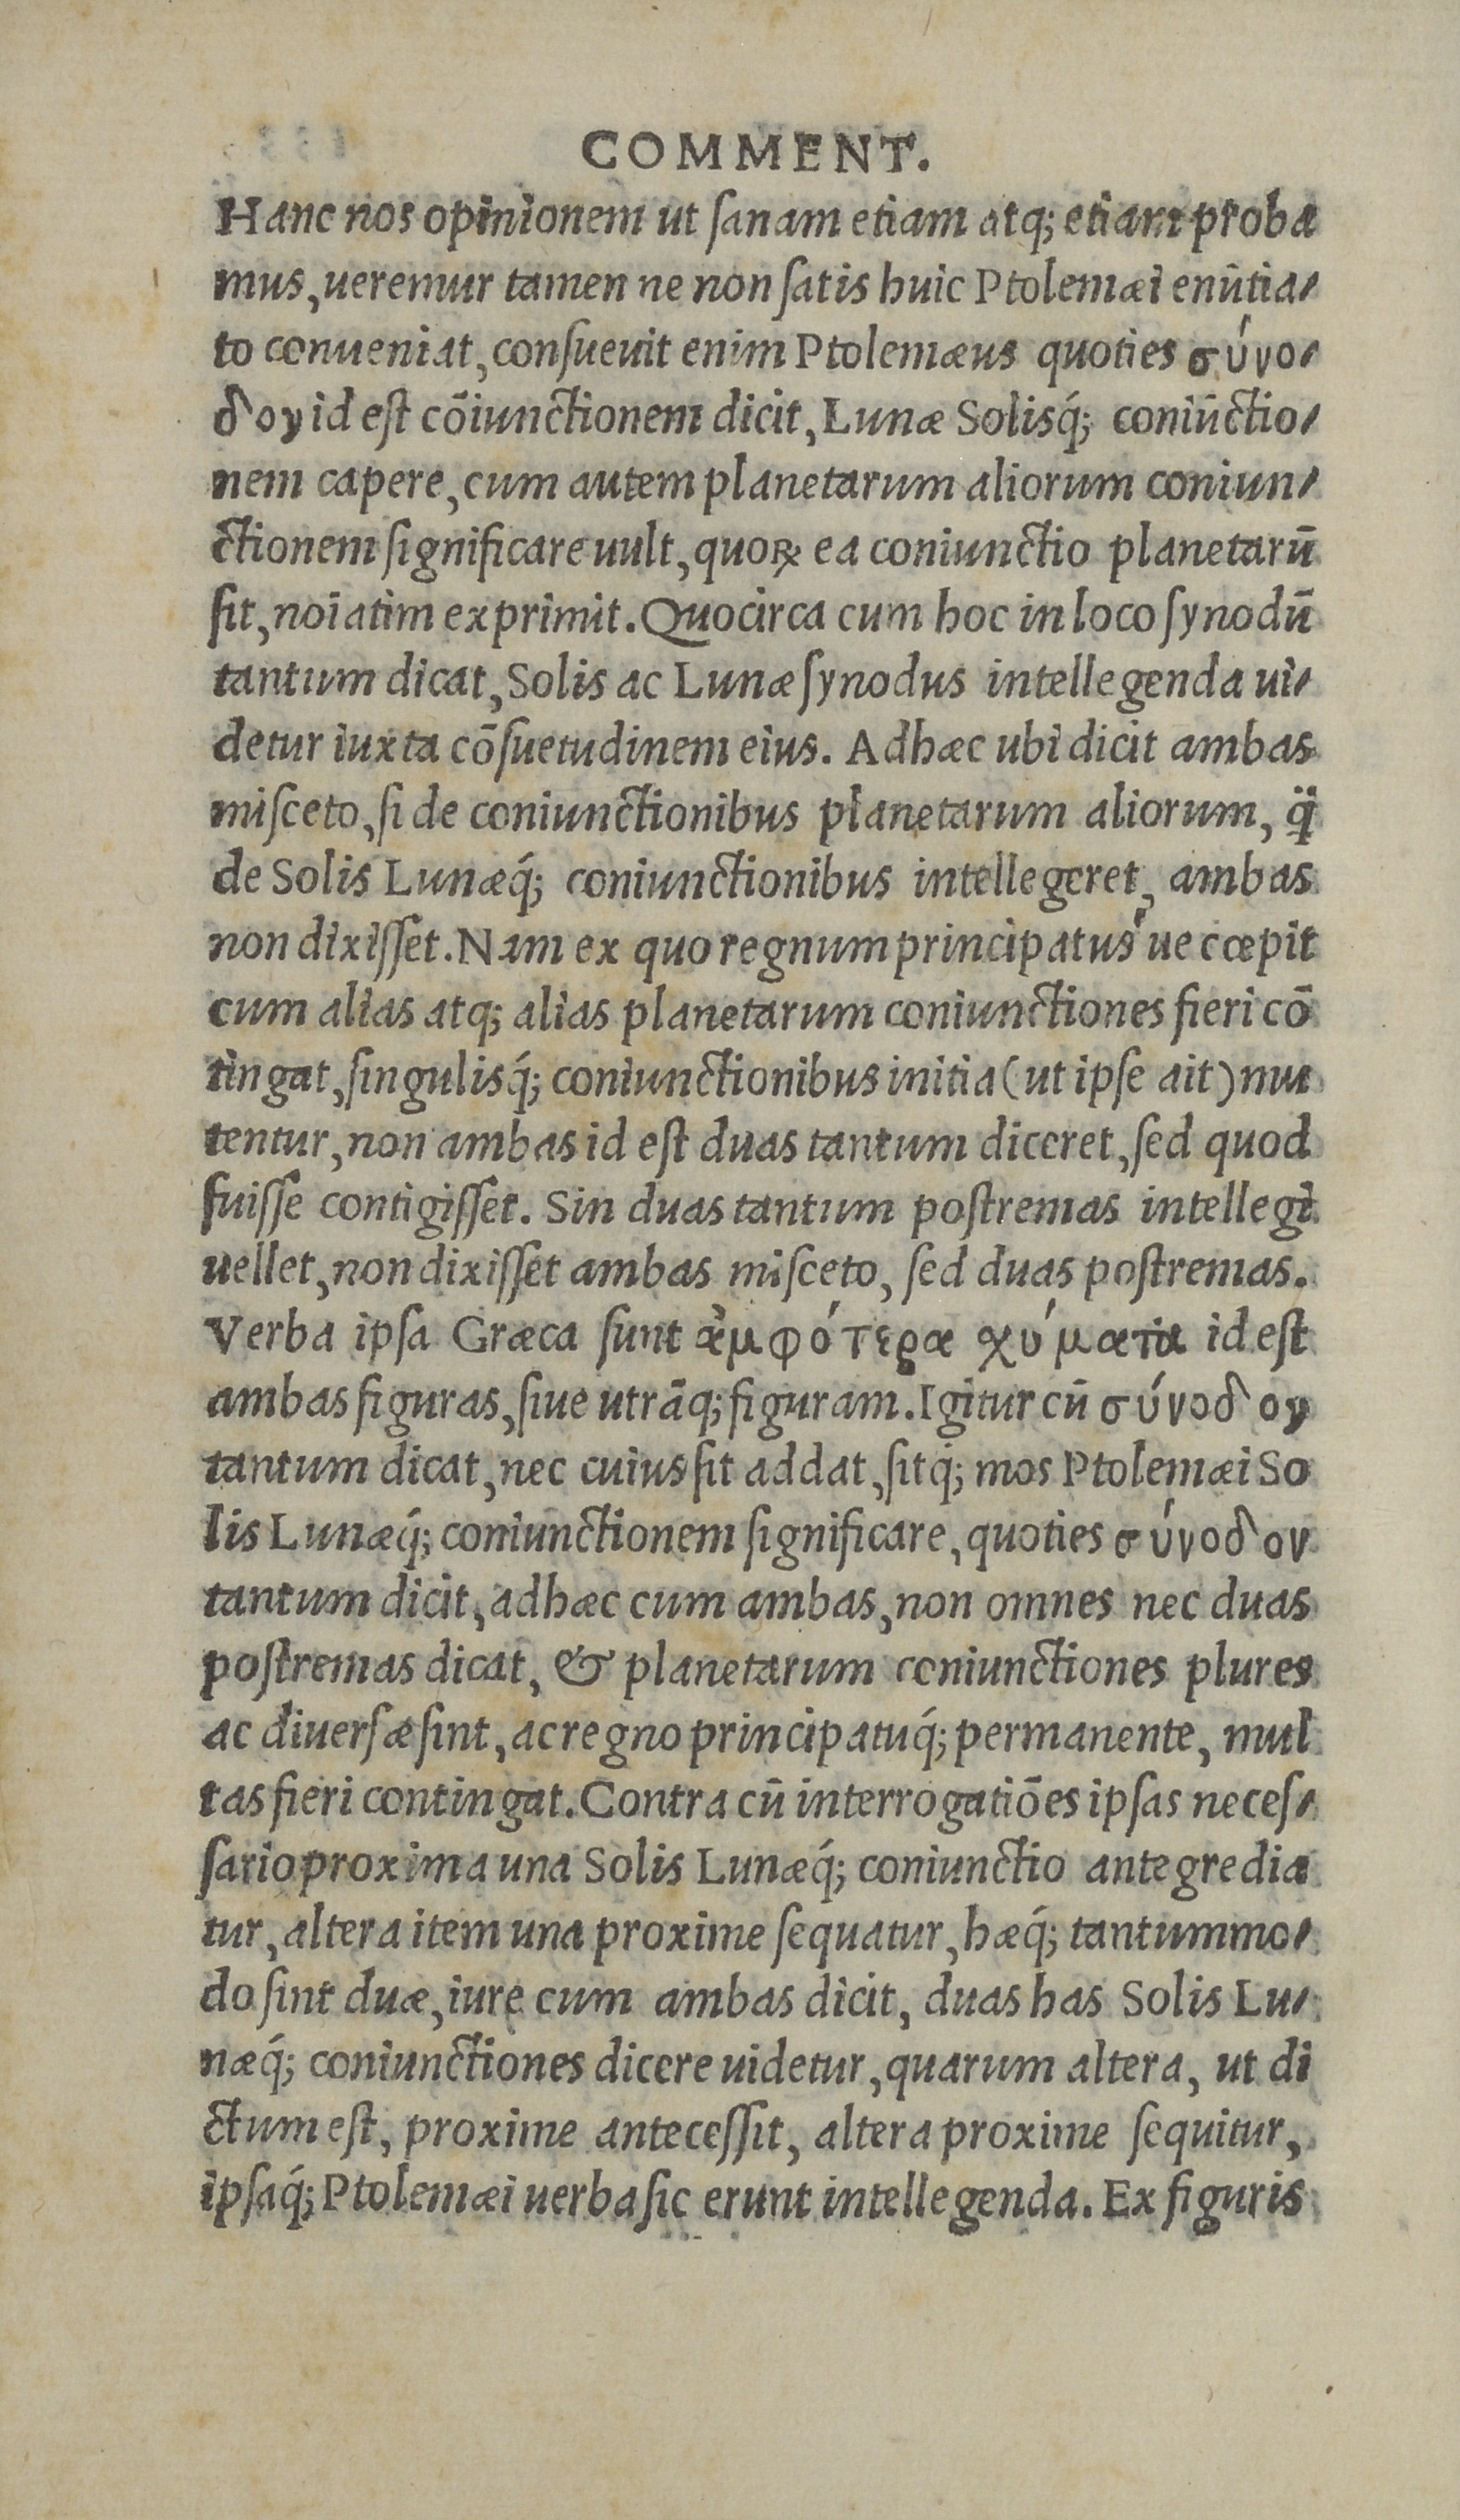 COMMENT.
Hanc nos opinionem ut ſanam etiam atq; etiam proba
mus, ueremur tamen ne non ſatis huic Ptolemæi enũtia/
to conueniat, conſueuit enim Ptolemæus quoties σύνο/
δον id eſt cōiunctionem dicit, Lunæ Solisq́; coniũctio/
nem capere, cum autem planetarum aliorum coniun/
ctionem ſignificare uult, quoꝝ ea coniunctio planetarū
ſit, noīatim exprimit. Quocirca cum hoc in loco ſynodū
tantum dicat, Solis ac Lunæ ſynodus intellegenda ui/
detur iuxta cōſuetudinem eius. Adhæc ubi dicit ambas
miſceto, ſi de coniunctionibus planetarum aliorum, q̈
de Solis Lunæq́; coniunctionibus intellegeret, ambas
non dixiſſet. Nam ex quo regnum principatus'ue cœpit
cum alias atq; alias planetarum coniunctiones fieri cō
tingat, ſingulisq́; coniunctionibus initia (ut ipſe ait) mu
tentur, non ambas id eſt duas tantum diceret, ſed quod
fuiſſe contigiſſet. Sin duas tantum poſtremas intellegi
uellet, non dixiſſet ambas miſceto, ſed duas poſtremas.
Verba ipſa Græca ſunt ἀμφότερα χύματα id eſt
ambas figuras, ſiue utrāq; figuram. Igitur cū σύνοδον
tantum dicat, nec cuius ſit addat, ſitq́; mos Ptolemæi So
lis Lunæq́; coniunctionem ſignificare, quoties σύνοδον
tantum dicit, adhæc cum ambas, non omnes nec duas
poſtremas dicat, & planetarum coniunctiones plures
ac diuerſæ ſint, ac regno principatuq́; permanente, mul
tas fieri contingat. Contra cū interrogatiōes ipſas neceſ/
ſario proxima una Solis Lunæq́; coniunctio antegredia
tur, altera item una proxime ſequatur, hæq́; tantummo/
do ſint duæ, iure cum ambas dicit, duas has Solis Lu/
næq́; coniunctiones dicere uidetur, quarum altera, ut di
ctum eſt, proxime anteceſſit, altera proxime ſequitur,
ipſaq́; Ptolemæi uerba ſic erunt intellegenda. Ex figuris